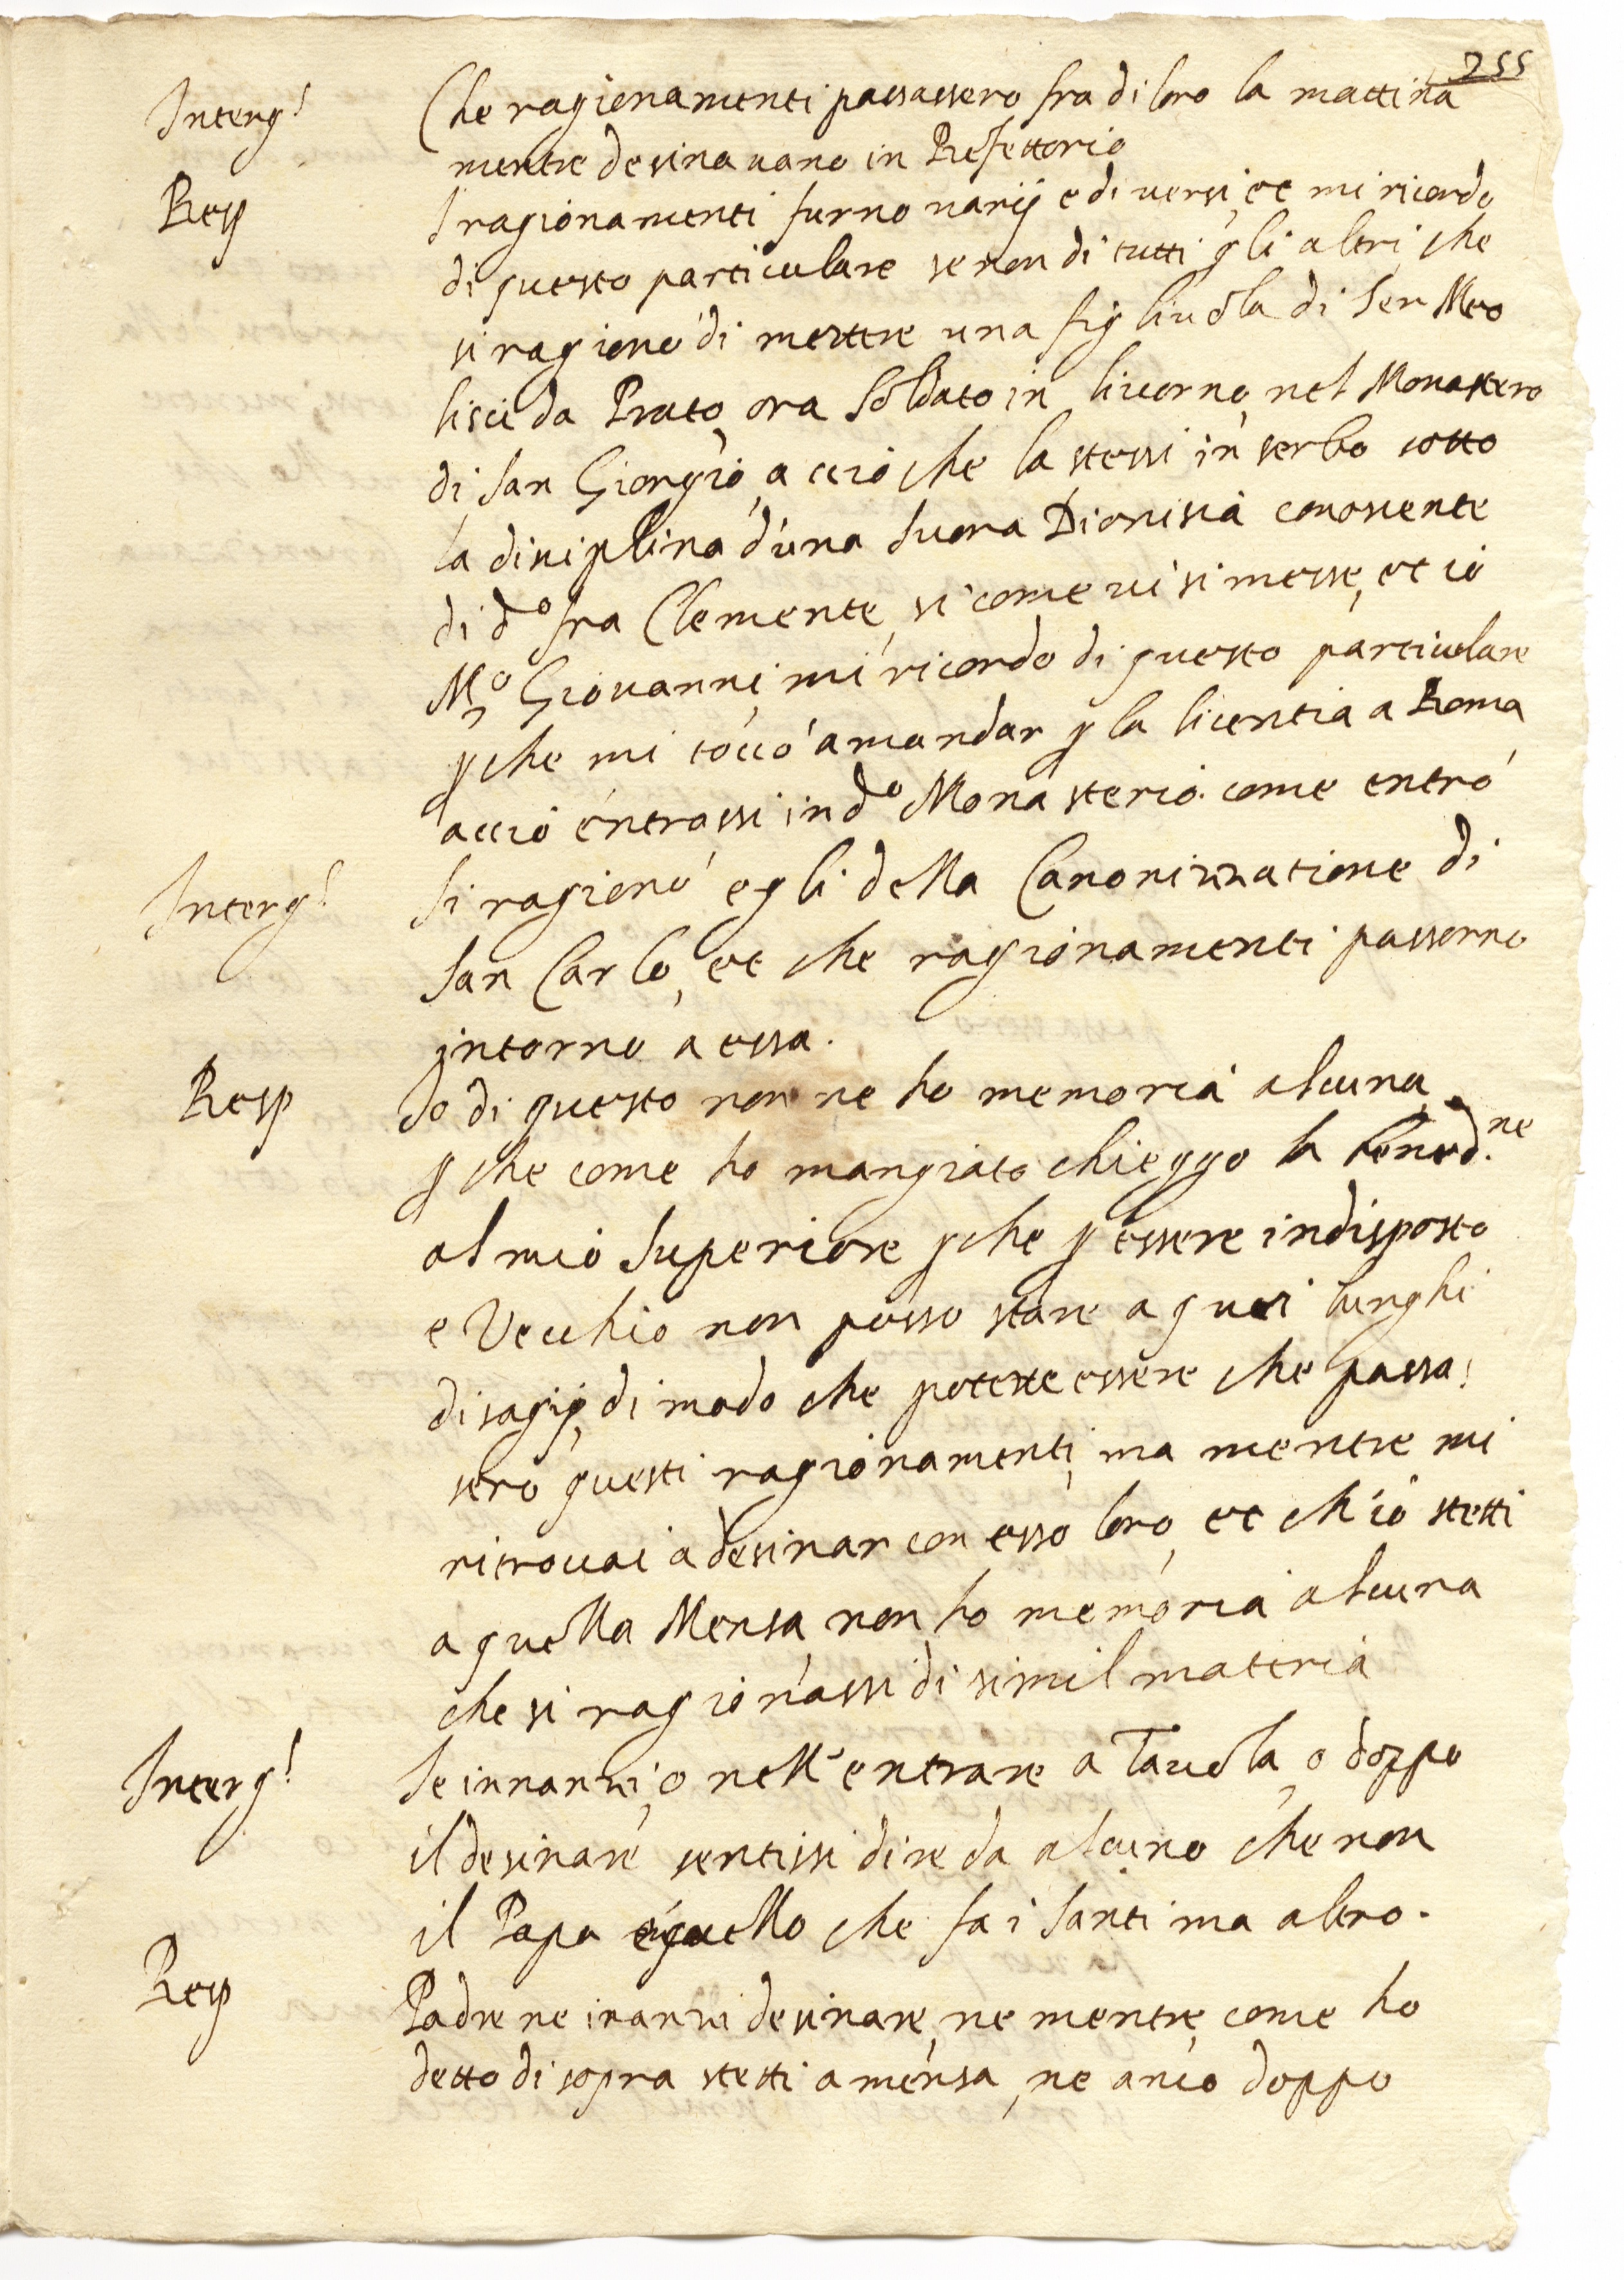 255
Interg! Che ragionamenti passassero fra di loro la mattina
mentre desinavano in Refettorio
Resp I ragionamenti furno varij e diversi, et mi ricordo
di questo particulare se non di tutti gli altri che
si ragionò di mettere una figliuola di Ser Meo
lisci da Prato, ora soldato in livorno, nel Monastero
di San Giorgio, acciò che la stessi in serbo sotto
la disciplina d'una Suora Dionisia conoscente
di d.o fra Clemente, si come vi si messe, et io
M.o Giovanni mi ricordo di questo particulare
p che mi toccò a mandar p la licentia a Roma
acciò entrassi in d.o Monasterio come entrò
Interg! Si ragionò egli della Canonizzatione di
San Carlo, et che ragionamenti passorno
intorno a essa.
Resp Io di questo non ne ho memoria alcuna,
p che come ho mangiato chieggo la bened.ne
al mio Superiore p che p essere indisposto
e Vecchio non posso stare a quei lunghi
disagij, di modo che potette essere che passas
sero questi ragionamenti, ma mentre mi
ritrovai a desinar con esso loro, et ch'io stetti
a quella Mensa, non ho memoria alcuna
che si ragionassi di simil materia
Interg! Se innanzi, o nell'entrare a Tavola, o doppo
il desinare sentissi dire da alcuno che non
il Papa è quello che fa i Santi ma altro.
Resp Padre ne inanzi desinare, ne mentre, come ho
detto di sopra stetti a mensa, ne anco doppo